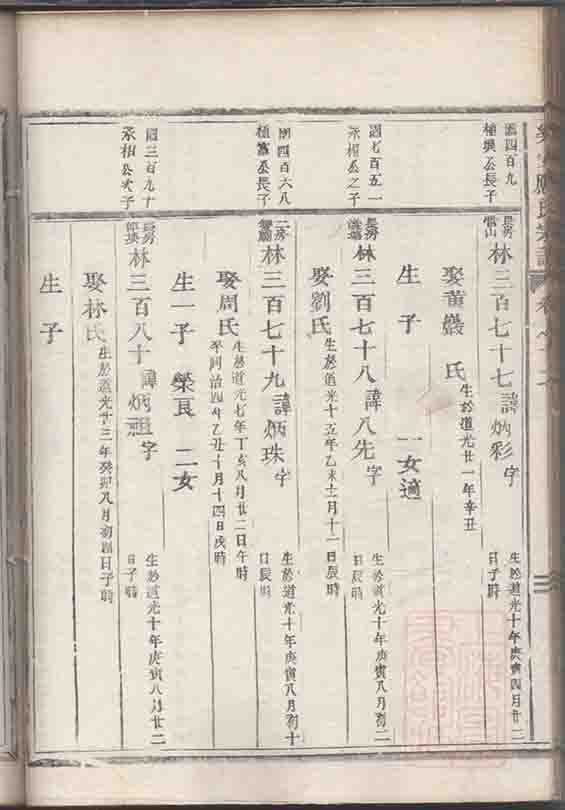 應氏宗譜
圖四百九
植槐公長子
長房
林三百七十七諱炳彩字
生於道光十年庚寅四月廿二
日子時
娶黃巖 氏
生於道光廿一年辛丑
生子 一女適
圖七百五一
永相公之子
長房
林三百七十八諱八先字
生於道光十年庚寅八月初二
日辰時
娶劉氏
生於道光十五年乙未十一月十一日辰時
圖四百六八
植富公長子
三房
林三百七十九諱炳珠字
生於道光十年庚寅八月初十
日辰時
娶周氏
生於道光七年丁亥八月廿二日午時
卒同治四年乙丑十月十四日戌時
生一子 榮良 二女
圖三百九十
永相公次子
長房
林三百八十諱炳祖字
生於道光十年庚寅八月廿二
日子時
娶林氏
生於道光廿三年癸卯八月初四日子時
生子